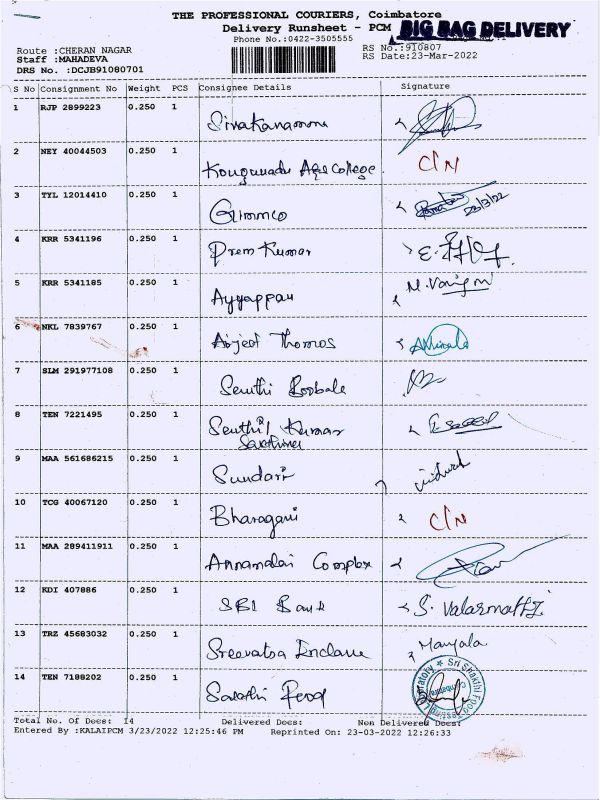 THE PROFESSIONAL COURIERS, Coimbatore
Delivery Runsheet - PCM BIG BAG DELIVERY
Phone No.:0422-3505555
Route :CHERAN NAGAR RS No.:910807
Staff :MAHADEVA RS Date:23-Mar-2022
DRS No. :DCJB91080701
S No Consignment No Weight PCS Consignee Details Signature
1 RJP 2899223 0.250 1
2 NEY 40044503 0.250 1 College C/N
3 TYL 12014410 0.250 1 Gimmco 23/3/22
4 KRR 5341196 0.250 1 Prem Kumar
5 KRR 5341185 0.250 1 Ayyappan
6 NKL 7839767 0.250 1 Thomos
7 SLM 291977108 0.250 1 Senthi
8 TEN 7221495 0.250 1 Senthil Kumar
9 MAA 561686215 0.250 1 Sundari
10 TCG 40067120 0.250 1 C/N
11 MAA 289411911 0.250 1 Annamalai Complex
12 KDI 407886 0.250 1 SBI Bank S. Valarmathi
13 TRZ 45683032 0.250 1 Sreevatsa Manjala
14 TEN 7188202 0.250 1
Sri Shakthi Food
Total No. Of Docs: 14 Delivered Docs: Non Delivered Docs:
Entered By :KALAIPCM 3/23/2022 12:25:46 PM Reprinted On: 23-03-2022 12:26:33